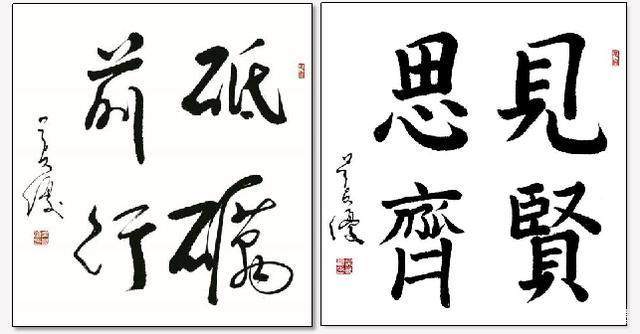 砥礪
前行
見賢
思齊